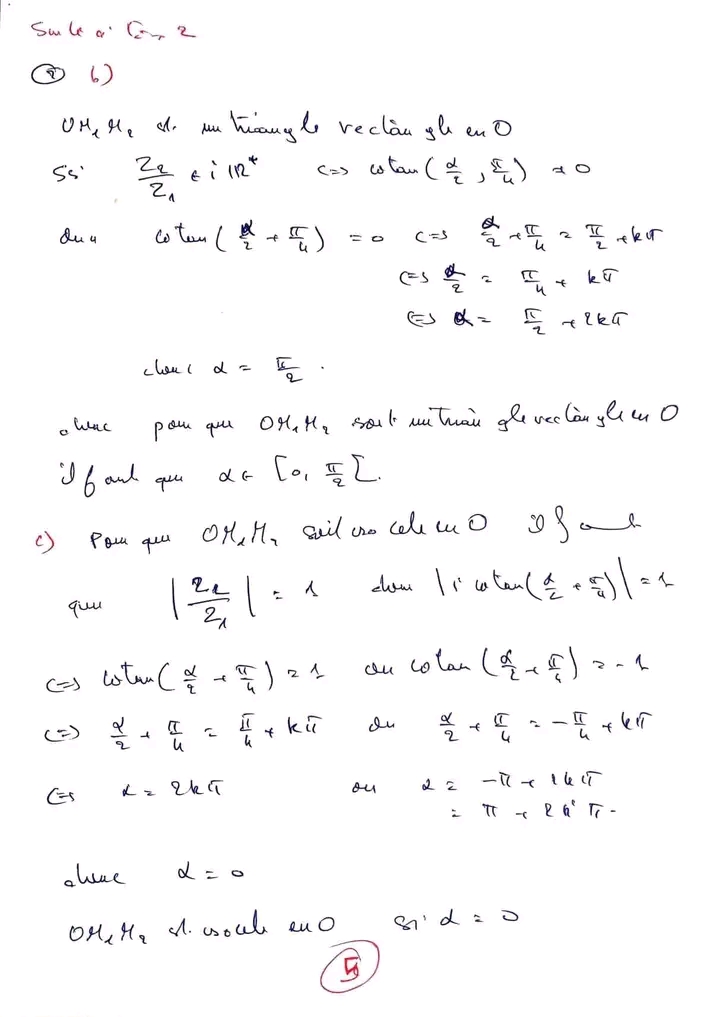 Suite ex 2
② b)
OM₁M₂ est un triangle rectangle en O
Ssi Z₂/Z₁ ∈ iℝ* <=> cotan(α/2 + π/4) ≠ 0
cotan(α/2 + π/4) = 0 <=> α/2 + π/4 = π/2 + kπ
<=> α/2 = π/4 + kπ
<=> α = π/2 + 2kπ
donc α = π/2.
donc pour que OM₁M₂ soit un triangle rectangle en O
il faut que α ∈ [0, π/2[.
c) Pour que OM₁M₂ soit isocele en O il faut
que |Z₂/Z₁| = 1 donc |i cotan(α/2 + π/4)| = 1
<=> cotan(α/2 + π/4) = 1 ou cotan(α/2 + π/4) = -1
<=> α/2 + π/4 = π/4 + kπ ou α/2 + π/4 = -π/4 + kπ
<=> α = 2kπ ou α = -π + 2kπ
= π + 2k'π.
donc α = 0
OM₁M₂ est isocele en O si α = 0
5